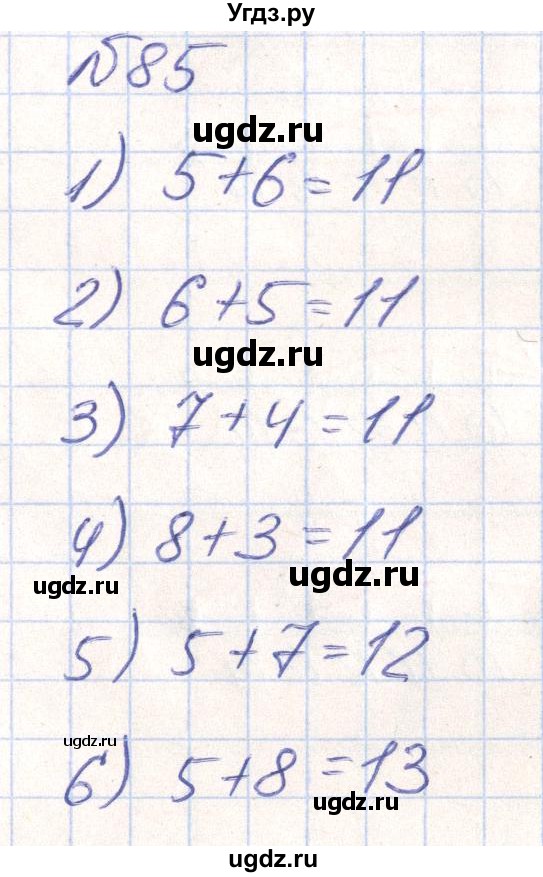 Угдз.ру
№85
ugdz.ru
1) 5+6=11
2) 6+5=11
ugdz.ru
3) 7+4=11
4) 8+3=11
ugdz.ru
ugdz.ru
5) 5+7=12
ugdz.ru
6) 5+8=13
ugdz.ru
ugdz.ru